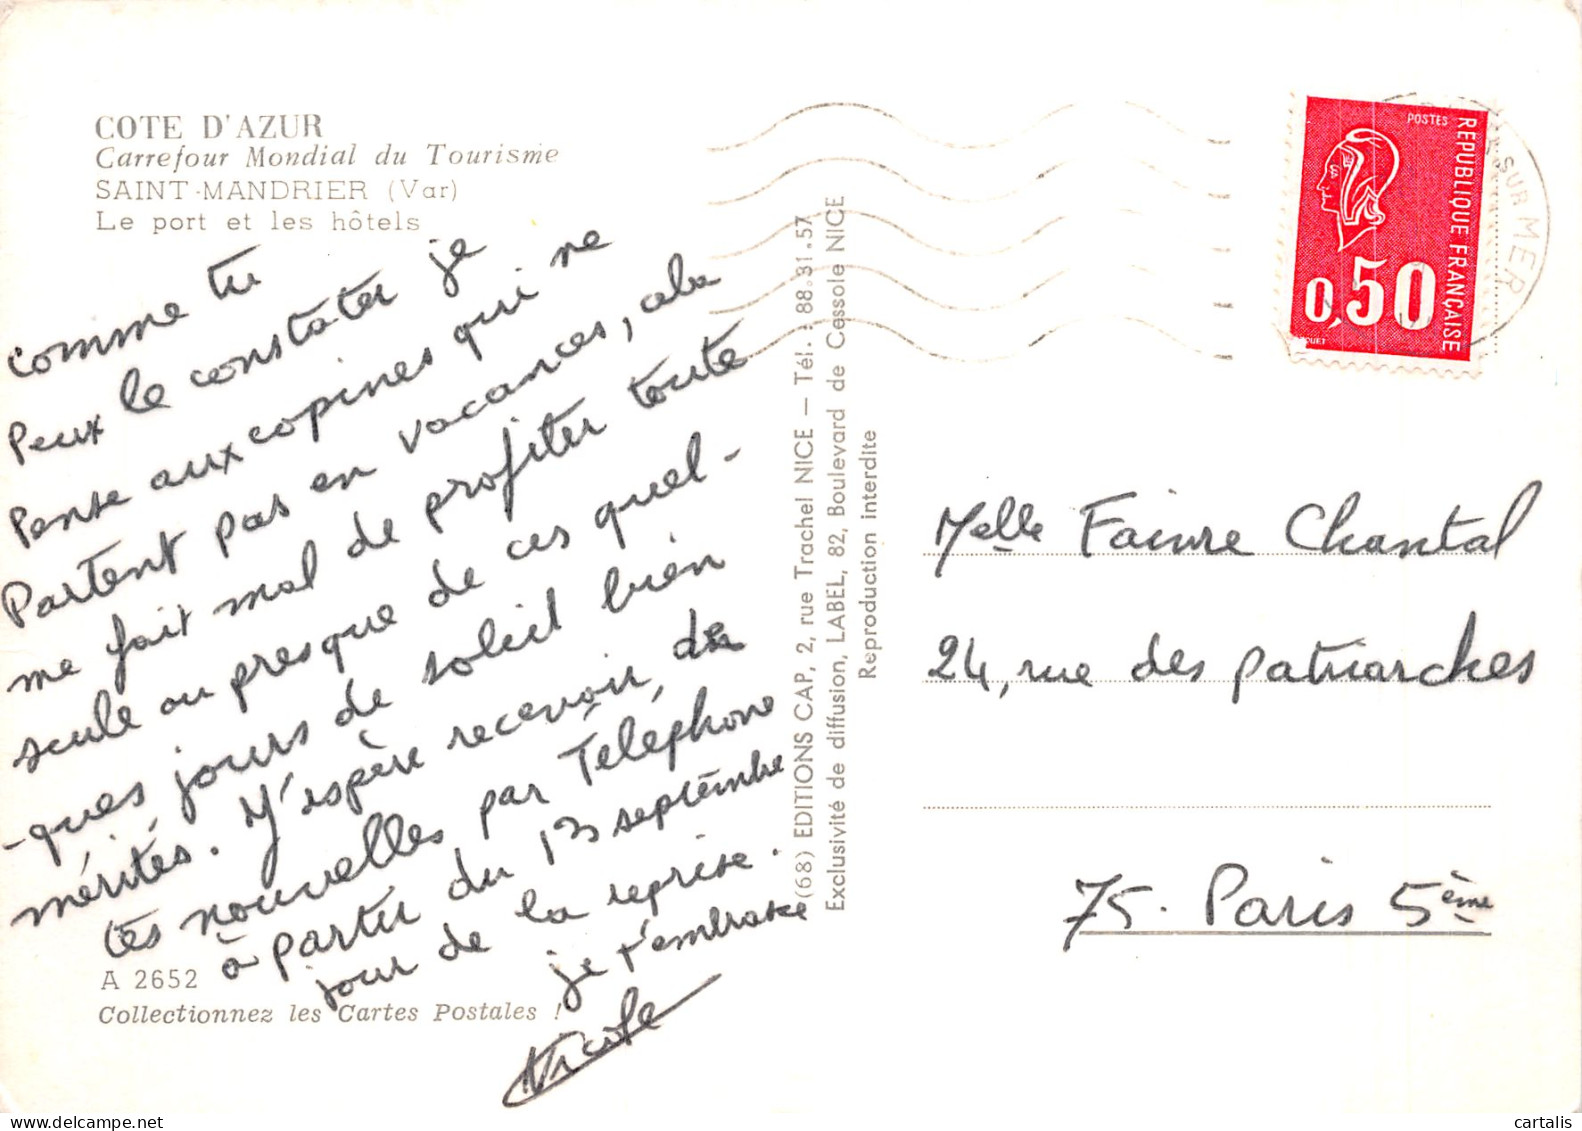 COTE D'AZUR
Carrefour Mondial du Tourisme
SAINT-MANDRIER (Var)
Le port et les hôtels
comme tu
peux le constater je
pense aux copines qui ne
partent pas en vacances, cela
me fait mal de profiter toute
seule ou presque de ces quel-
-ques jours de soleil bien
mérités. J'espère recevoir, de
tes nouvelles par Téléphone
à partir du 13 septembre
jour de la reprise.
je t'embrasse
Nicole
A 2652
Collectionnez les Cartes Postales !
(68) EDITIONS CAP, 2, rue Trachel NICE — Tél. : 88.31.57
Exclusivité de diffusion, LABEL, 82, Boulevard de Cessole NICE
Reproduction interdite
POSTES
REPUBLIQUE FRANÇAISE
0,50
SUR MER
Melle Faivre Chantal
24, rue des patriarches
75. Paris 5ème
cartalis